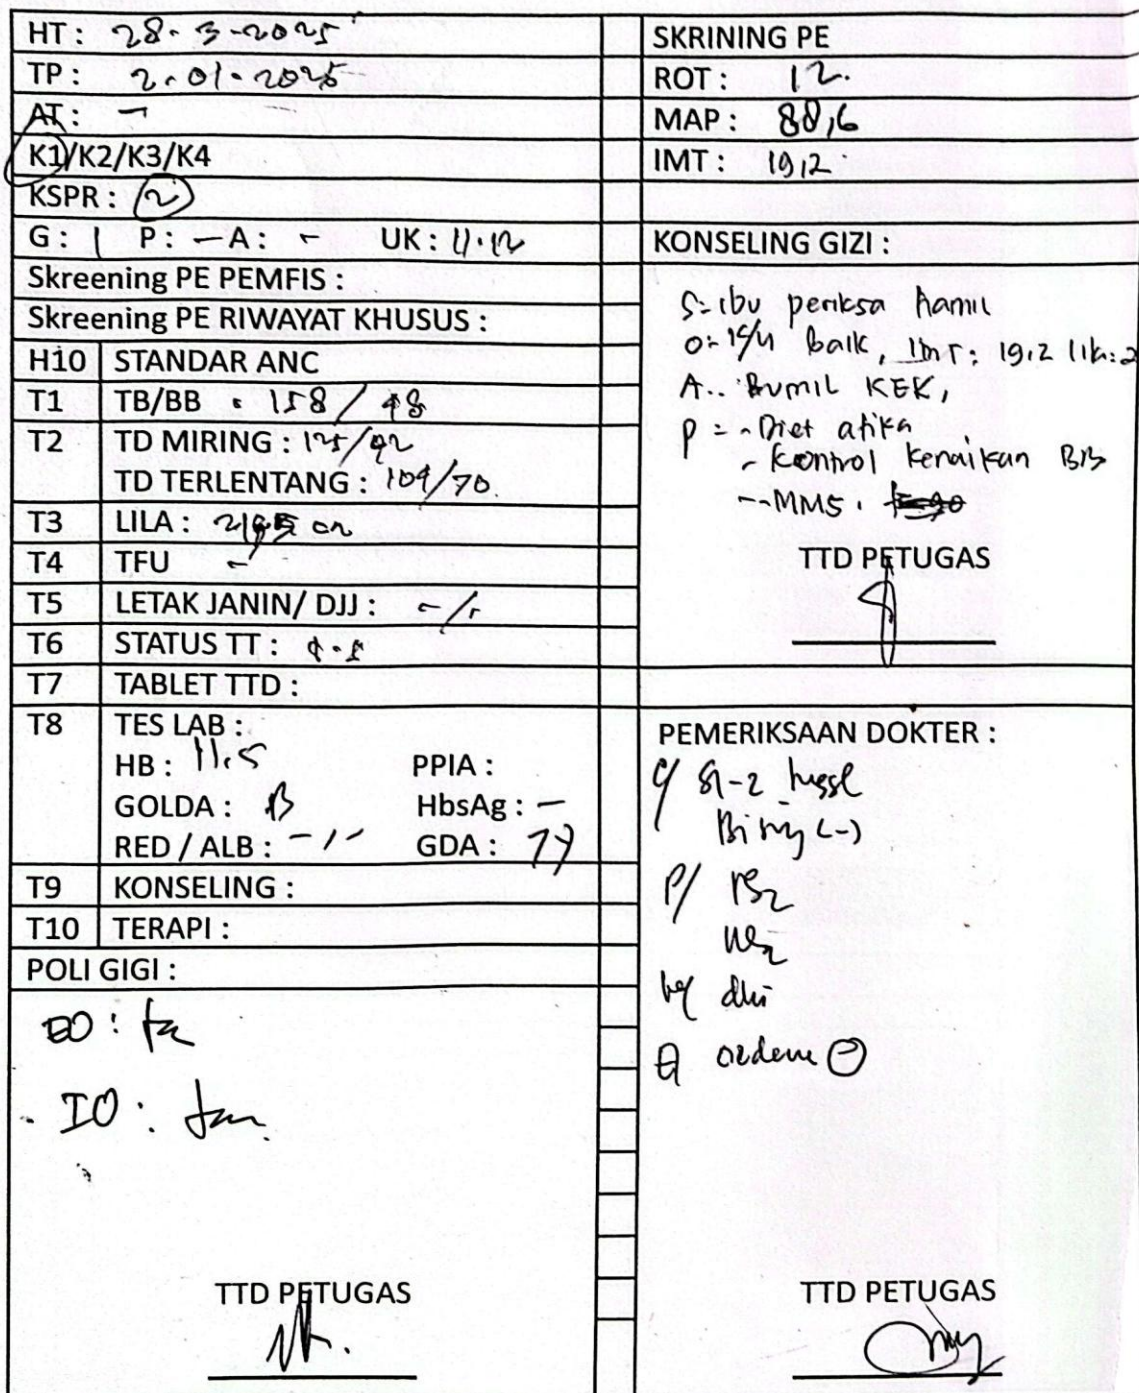 HT : 28-3-2025
TP : 2-01-2025
AT : -
K1/K2/K3/K4
KSPR : 2
G : 1 P : - A : - UK : 11-12
Skreening PE PEMFIS :
Skreening PE RIWAYAT KHUSUS :
H10 STANDAR ANC
T1 TB/BB : 158 / 48
T2 TD MIRING : 125/92
TD TERLENTANG : 104/70
T3 LILA : cm
T4 TFU -
T5 LETAK JANIN/ DJJ : -/-
T6 STATUS TT :
T7 TABLET TTD :
T8 TES LAB :
HB : 11.5 PPIA :
GOLDA : B HbsAg : -
RED / ALB : -/- GDA : 79
T9 KONSELING :
T10 TERAPI :
POLI GIGI :
EO : ta
IO :
TTD PETUGAS
SKRINING PE
ROT : 12.
MAP : 88,6
IMT : 19,2
KONSELING GIZI :
S : ibu periksa hamil
O : k/u baik, IMT : 19.2
A : Bumil KEK,
P = - Diet
- Kontrol kenaikan BB
- MMS.
TTD PETUGAS
PEMERIKSAAN DOKTER :
S1-2 tunggal
(-)
P/
TTD PETUGAS